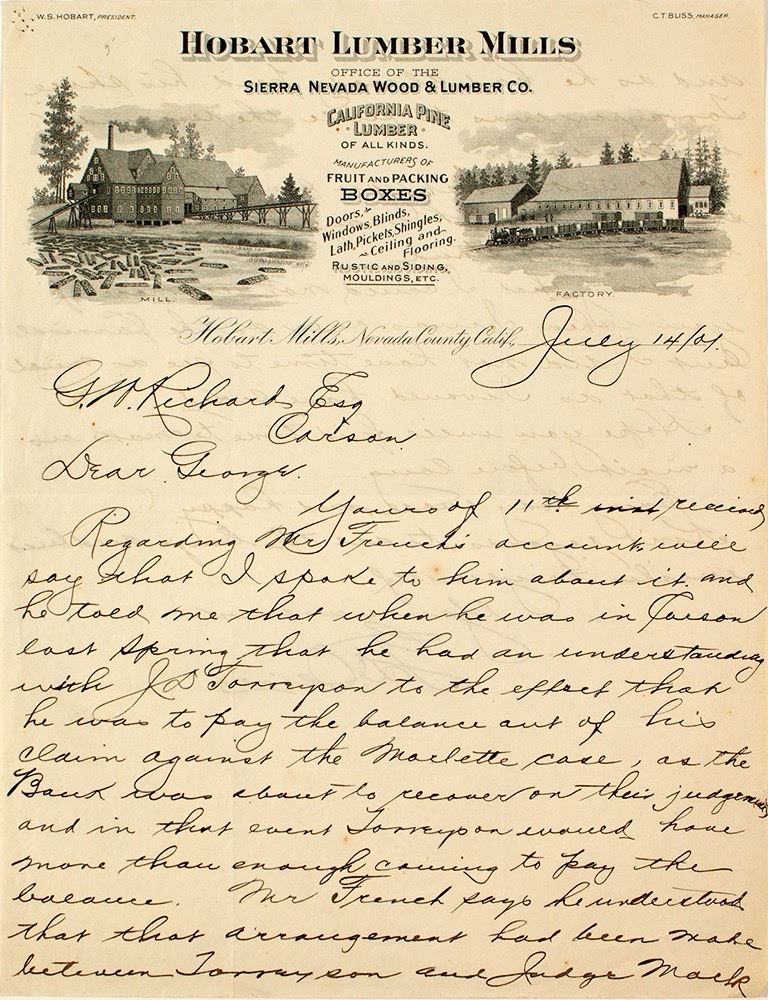 W.S. HOBART, PRESIDENT.
C.T. BLISS, MANAGER.
HOBART LUMBER MILLS
OFFICE OF THE
SIERRA NEVADA WOOD & LUMBER CO.
CALIFORNIA PINE
LUMBER
OF ALL KINDS.
MANUFACTURERS OF
FRUIT AND PACKING
BOXES
Doors,
Windows, Blinds,
Lath, Pickets, Shingles,
Ceiling and
Flooring.
RUSTIC AND SIDING,
MOULDINGS, ETC.
MILL.
FACTORY.
Hobart Mills, Nevada County Calif., July 14/01.
G.W. Richard Esq
Carson
Dear George.
Yours of 11th inst received
Regarding Mr French's account, will
say that I spoke to him about it. and
he told me that when he was in Carson
last spring that he had an understanding
with J D Torreyson to the effect that
he was to pay the balance out of his
claim against the Marlette case, as the
Bank was about to recover on their judgement
and in that event Torreyson would have
more than enough coming to pay the
balance. Mr French says he understood
that that arrangement had been made
between Torreyson and Judge Mack